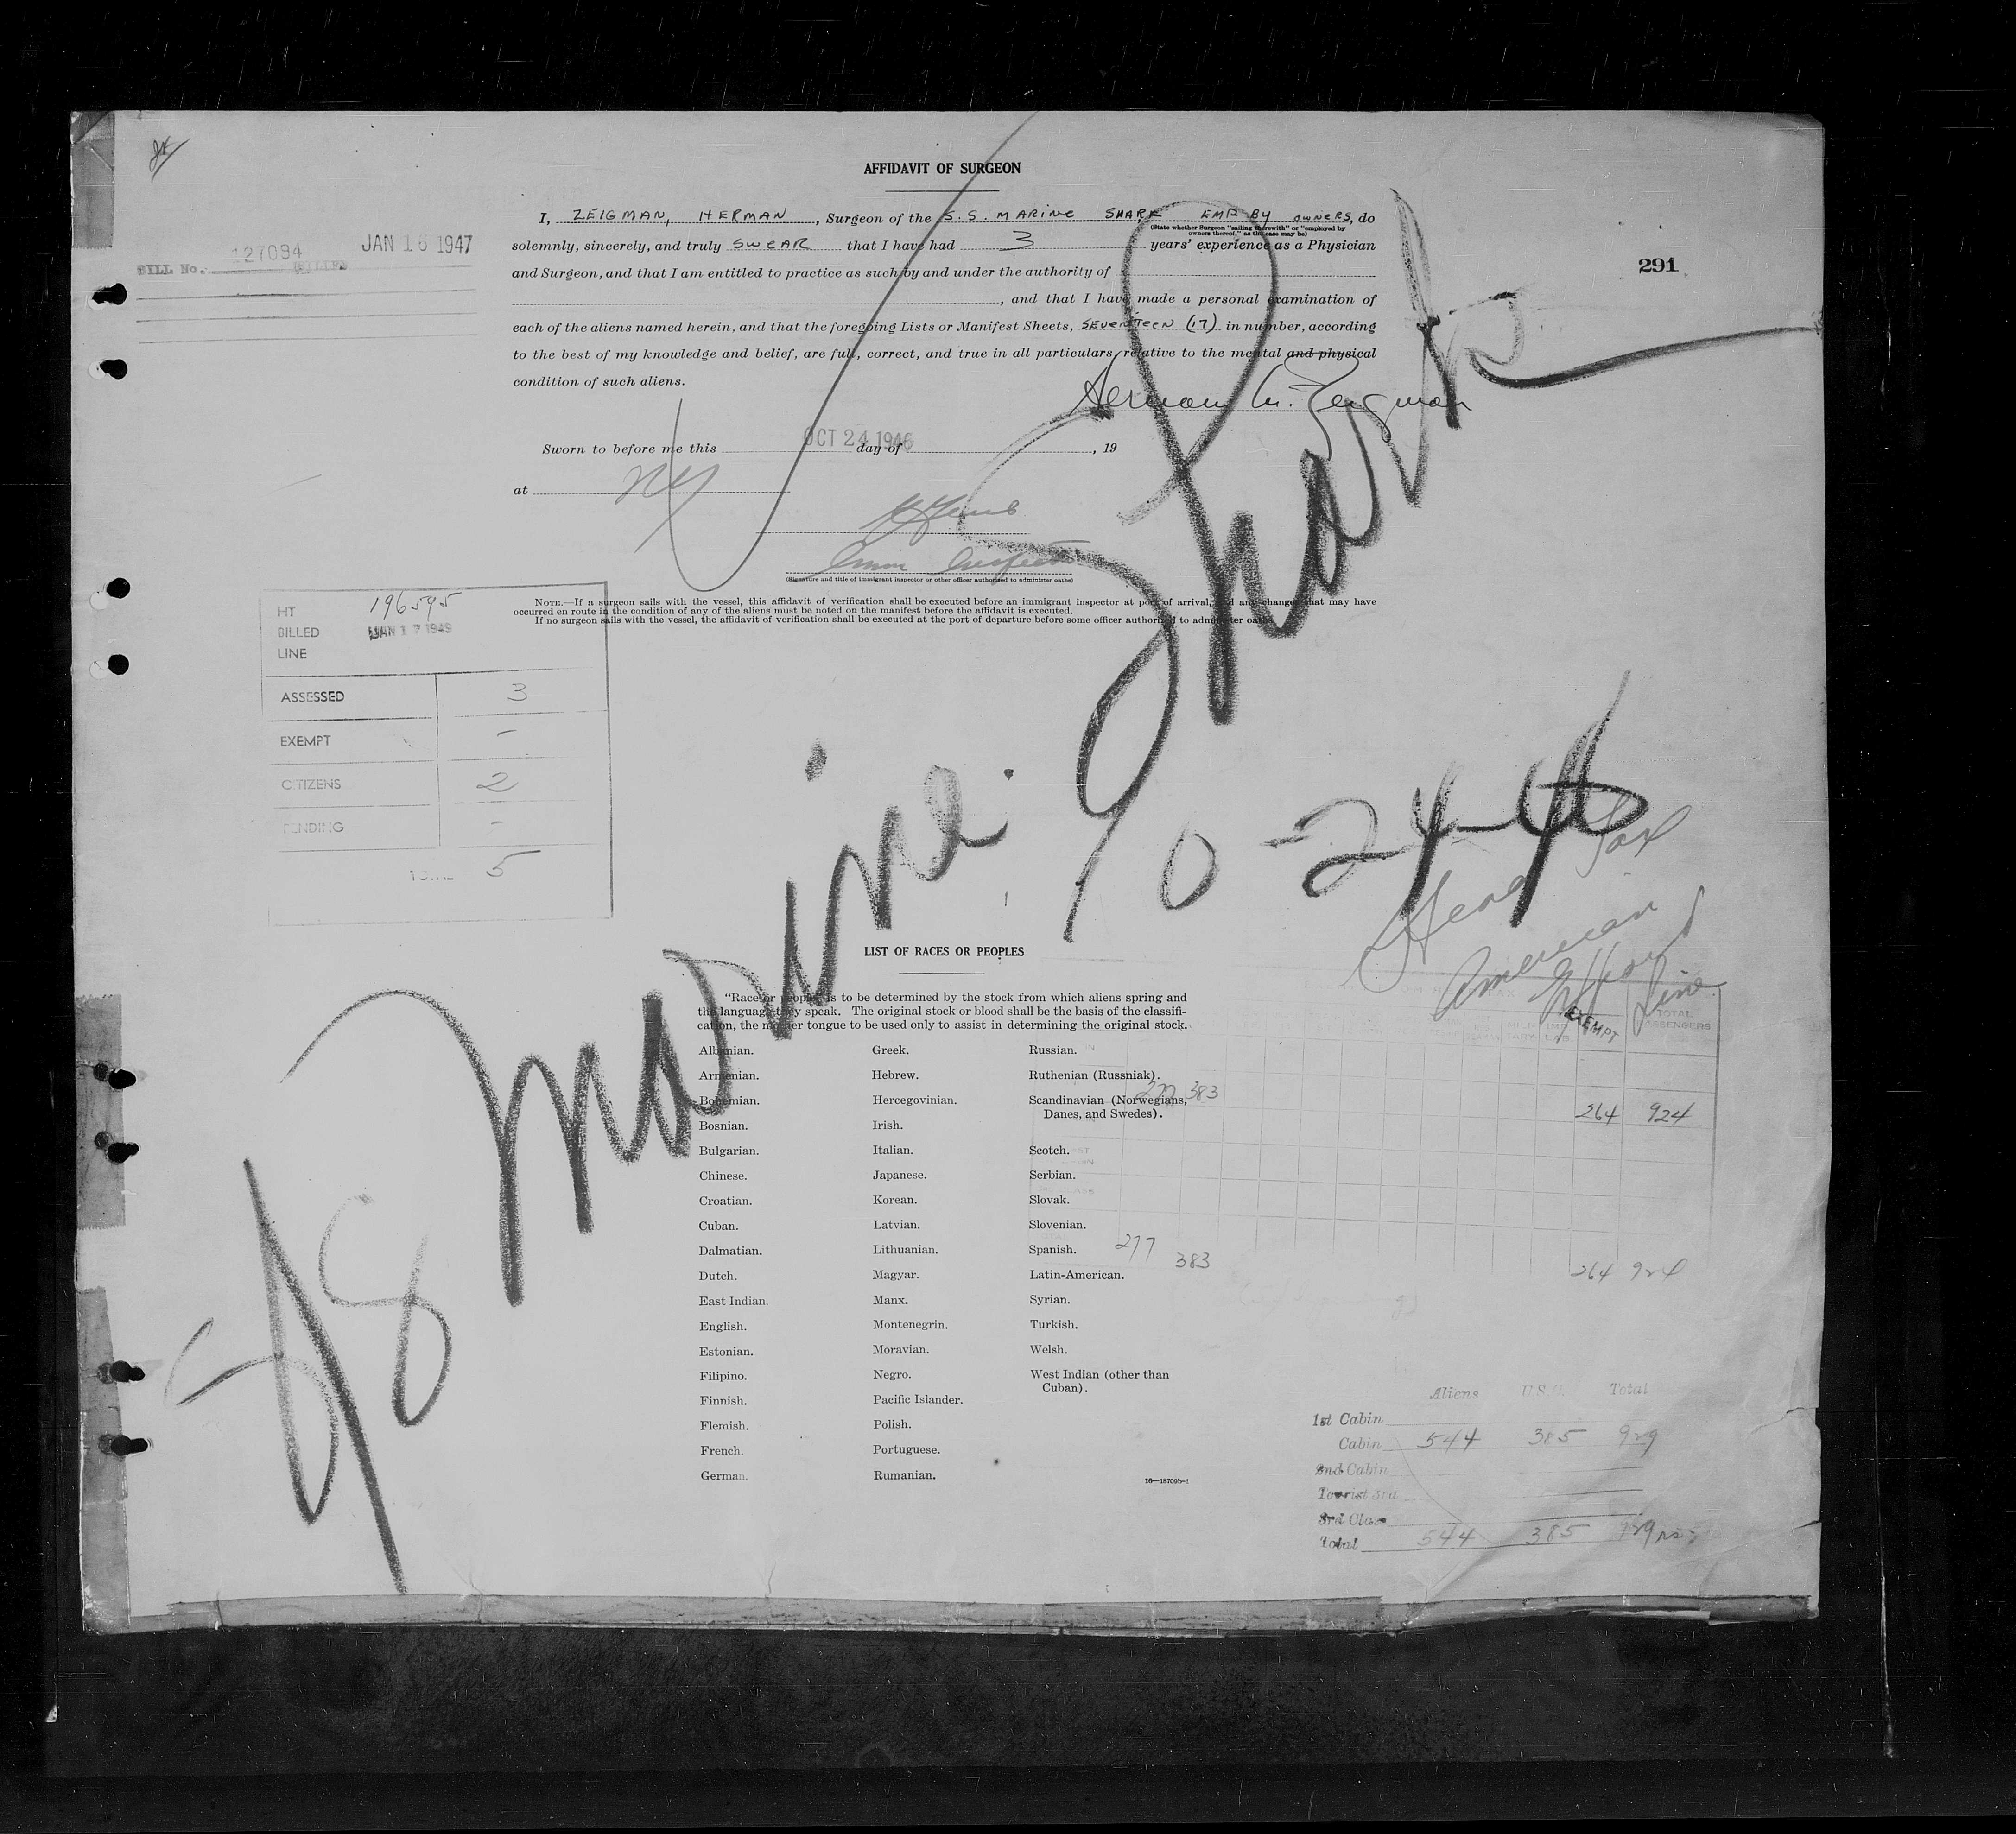 AFFIDAVIT OF SURGEON
I, ZEIGMAN, HERMAN, Surgeon of the S.S. MARINE SHARK EMP BY OWNERS, do
(State whether Surgeon "sailing therewith" or "employed by owners thereof," as the case may be)
solemnly, sincerely, and truly SWEAR that I have had 3 years' experience as a Physician
and Surgeon, and that I am entitled to practice as such by and under the authority of
, and that I have made a personal examination of
each of the aliens named herein, and that the foregoing Lists or Manifest Sheets, SEVENTEEN (17) in number, according
to the best of my knowledge and belief, are full, correct, and true in all particulars relative to the mental and physical
condition of such aliens.
Herman M. Zeigman
Sworn to before me this OCT 24 1946 day of , 19
at NY
Immn Inspector
(Signature and title of immigrant inspector or other officer authorized to administer oaths)
NOTE.—If a surgeon sails with the vessel, this affidavit of verification shall be executed before an immigrant inspector at port of arrival, and any changes that may have
occurred en route in the condition of any of the aliens must be noted on the manifest before the affidavit is executed.
If no surgeon sails with the vessel, the affidavit of verification shall be executed at the port of departure before some officer authorized to administer oaths.
BILL No. 127094 BILLED JAN 16 1947
291
HT 196595
BILLED JAN 17 1949
LINE
ASSESSED 3
EXEMPT -
CITIZENS 2
PENDING -
TOTAL 5
SS Marine Shark
10-24-46
Head Tax
American
Export
Line
LIST OF RACES OR PEOPLES
"Race or people" is to be determined by the stock from which aliens spring and
the language they speak. The original stock or blood shall be the basis of the classifi-
cation, the mother tongue to be used only to assist in determining the original stock.
Albanian.
Armenian.
Bohemian.
Bosnian.
Bulgarian.
Chinese.
Croatian.
Cuban.
Dalmatian.
Dutch.
East Indian.
English.
Estonian.
Filipino.
Finnish.
Flemish.
French.
German.
Greek.
Hebrew.
Hercegovinian.
Irish.
Italian.
Japanese.
Korean.
Latvian.
Lithuanian.
Magyar.
Manx.
Montenegrin.
Moravian.
Negro.
Pacific Islander.
Polish.
Portuguese.
Rumanian.
Russian.
Ruthenian (Russniak).
Scandinavian (Norwegians,
Danes, and Swedes).
Scotch.
Serbian.
Slovak.
Slovenian.
Spanish.
Latin-American.
Syrian.
Turkish.
Welsh.
West Indian (other than
Cuban).
16—18709b-1
EXEMPT TOTAL PASSENGERS
277 383 264 924
277 383 264 924
Aliens U.S.C. Total
1st Cabin
Cabin 544 385 929
2nd Cabin
Tourist 3rd
3rd Class
Total 544 385 929